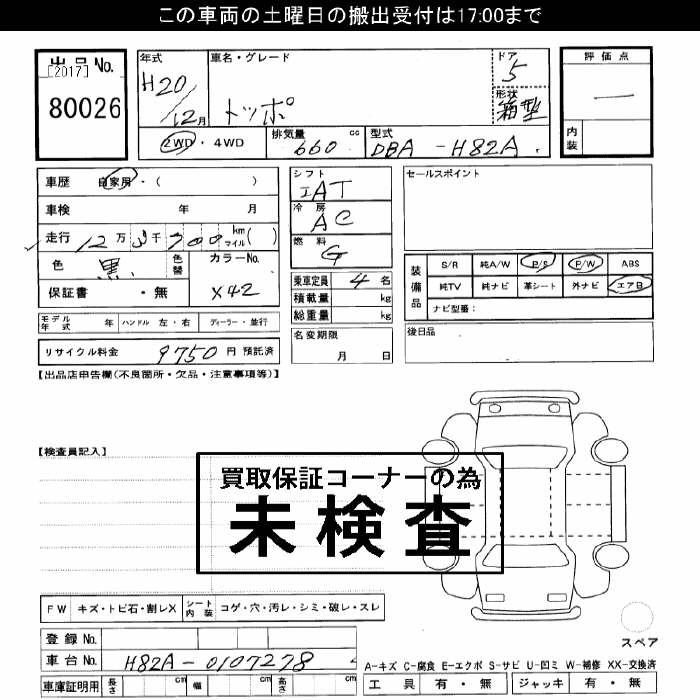 この車両の土曜日の搬出受付は17:00まで
出品No.
[2017]
80026
年式
H20/12月
車名・グレード
トッポ
ドア
5
形状
箱型
評価点
—
内装
2WD・4WD
排気量 660 cc
型式 DBA-H82A
車歴 自家用・( )
車検 年 月
走行 12万3千700 km マイル( )
色 黒
色替
カラーNo.
X42
保証書・無
シフト
IAT
冷房
AC
燃料
G
乗車定員 4 名
積載量 kg
総重量 kg
セールスポイント
装備品
S/R 純A/W P/S P/W ABS
純TV 純ナビ 革シート 外ナビ エアB
ナビ型番:
モデル年式 年 ハンドル 左・右 ディーラー・並行
リサイクル料金 9750 円 預託済
名変期限
月 日
後日品
【出品店申告欄(不良箇所・欠品・注意事項等)】
【検査員記入】
買取保証コーナーの為
未検査
FW キズ・トビ石・割レX シート内装 コゲ・穴・汚レ・シミ・破レ・スレ
登録No.
車台No. H82A-0107278
スペア
A-キズ C-腐食 E-エクボ S-サビ U-凹ミ W-補修 XX-交換済
車庫証明用 長さ cm 幅 cm 高さ cm
工具 有・無 ジャッキ 有・無